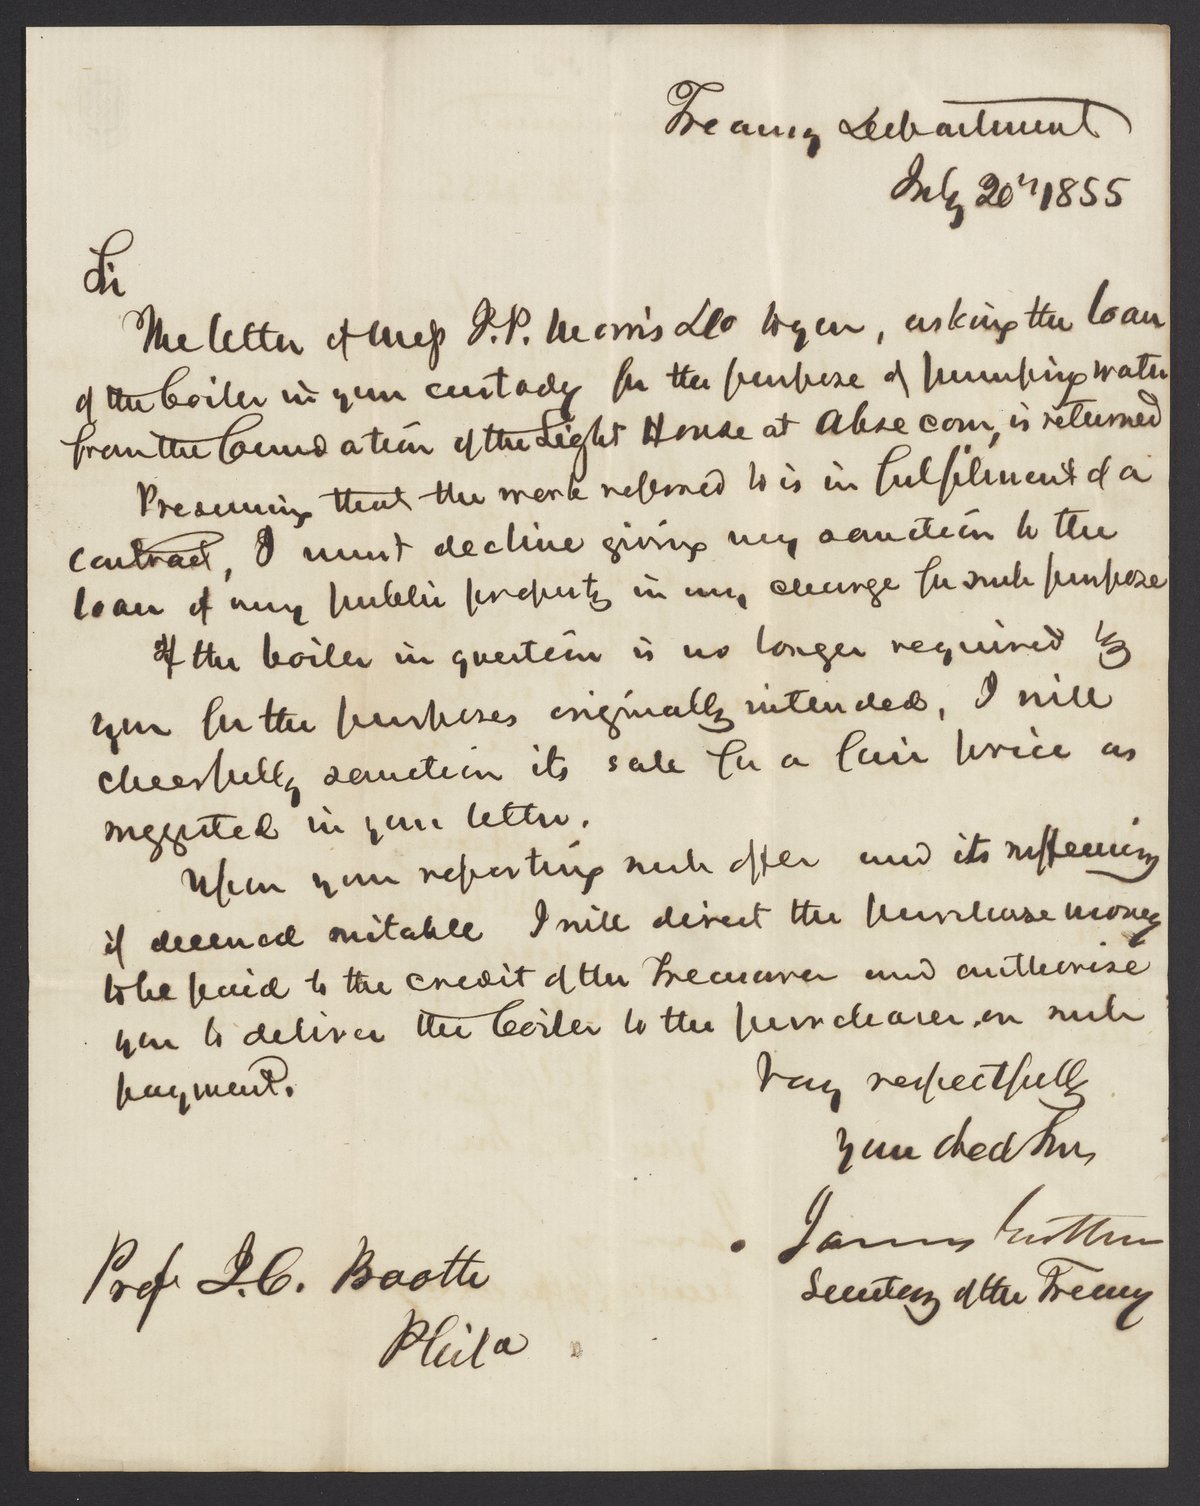 Treasury Department
July 20th 1855
Sir
The letter of Mess J. P. Morris & Co to you, asking the loan
of the boiler in your custody for the purpose of pumping water
from the foundation of the Light House at Absecom, is returned
Presuming that the work referred to is in fulfilment of a
contract, I must decline giving my sanction to the
loan of any public property in my charge for such purpose
If the boiler in question is no longer required by
you for the purposes originally intended, I will
cheerfully sanction its sale for a fair price as
suggested in your letter.
Upon your reporting such offer and its sufficiency
if deemed suitable I will direct the purchase money
to be paid to the credit of the Treasurer and authorise
you to deliver the boiler to the purchaser on such
payment.
Very respectfully
your obed Srv
James Guthrie
Secretary of the Treasury
Prof J. C. Booth
Phila